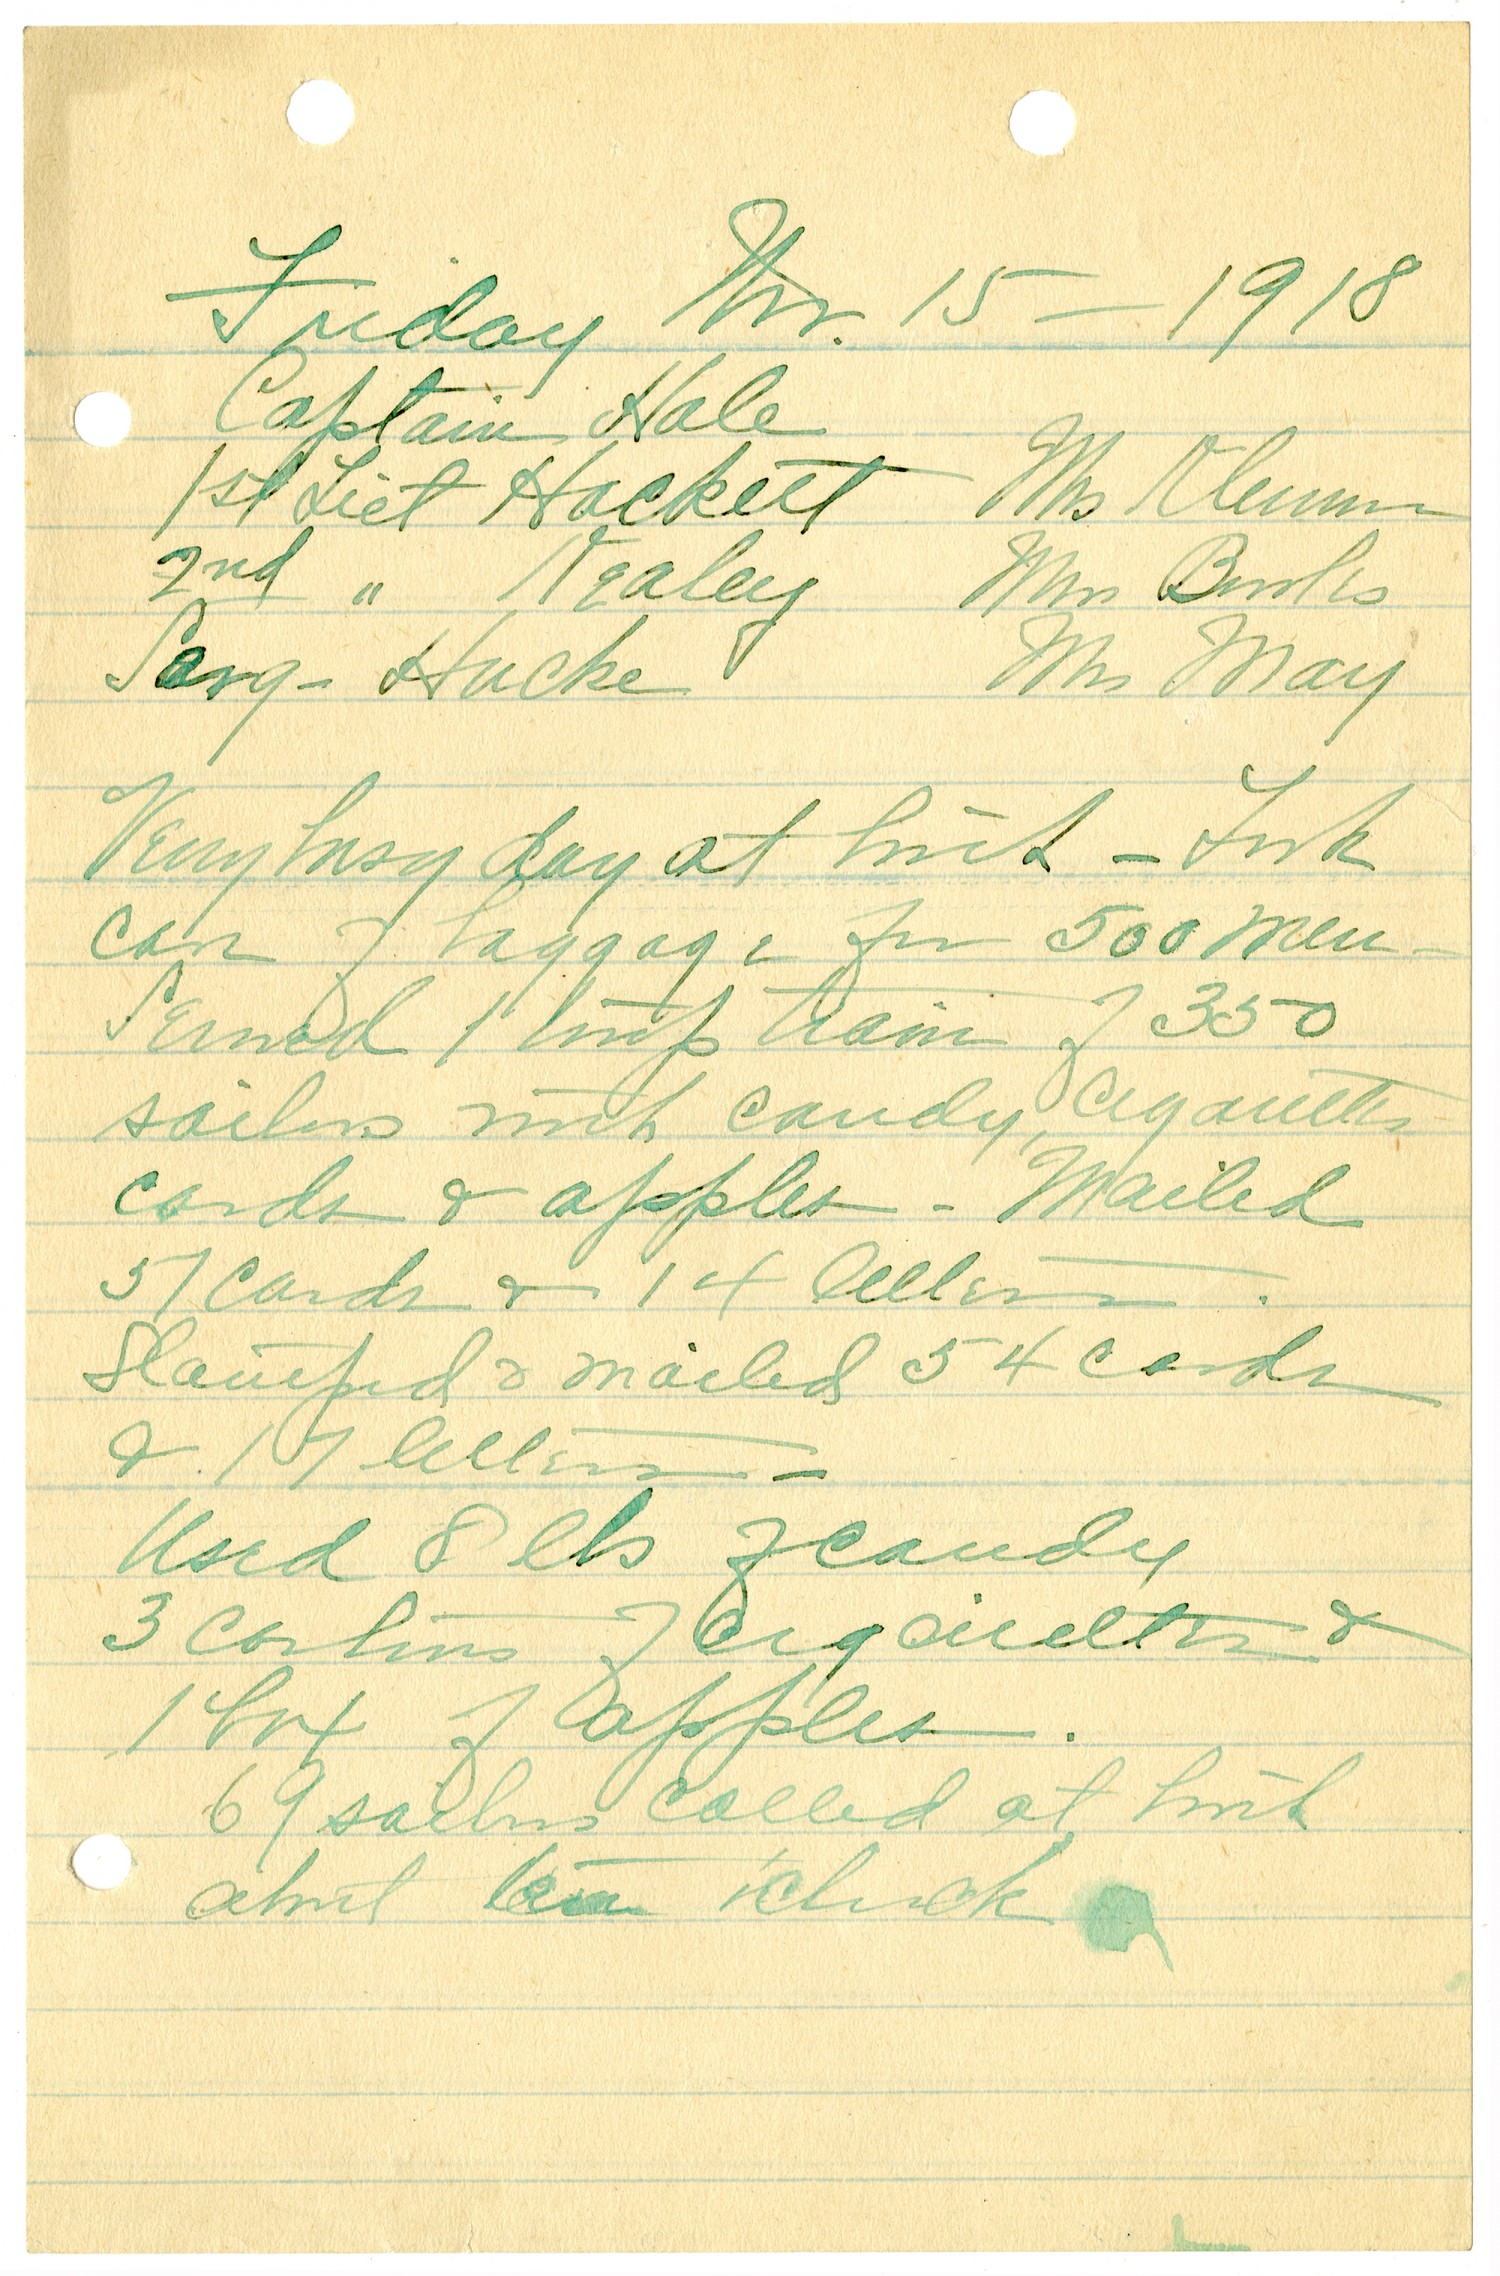 Friday Nov. 15 — 1918
Captain Hale
1st Liet Hackett Mrs
2nd " Nealey Mrs
Serg - Hucke Mrs May
Very busy day at hut - Took
care of baggage for 500 men -
Served 1 troop train of 350
sailors with candy, cigarettes
cards & apples - Mailed
57 cards & 14 letters.
Stamped & mailed 54 cards
& 17 letters -
Used 8 lbs of candy
3 cartons of cigarettes &
1 box of apples.
69 sailors called at hut
about ten o'clock